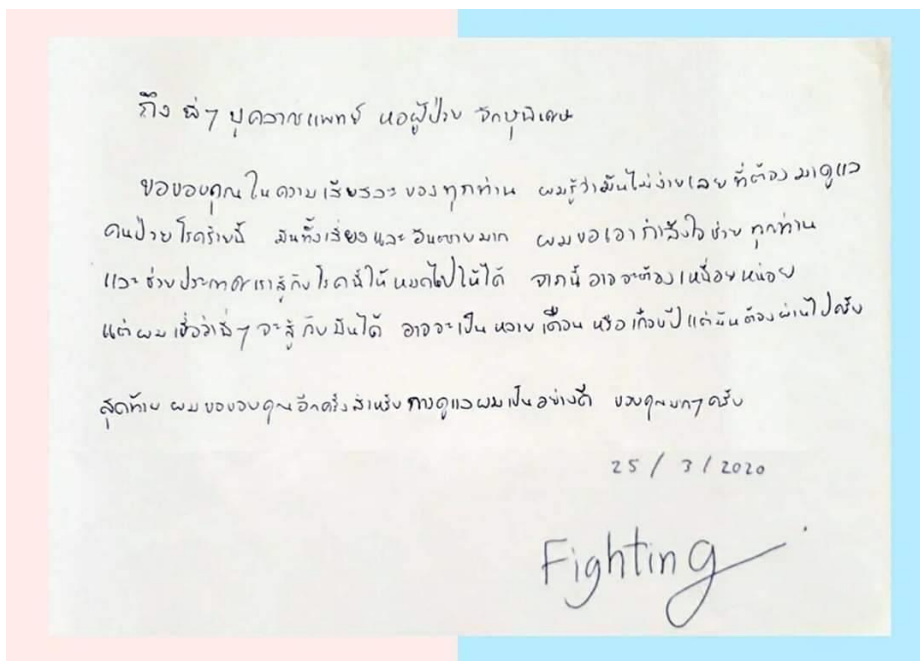 ถึง พี่ๆ บุคลากรแพทย์ หอผู้ป่วย จักษุพิเศษ
ขอขอบคุณในความเสียสละ ของทุกท่าน ผมรู้ว่ามันไม่ง่ายเลย ที่ต้อง มาดูแล
คนป่วย โรคร้ายนี้ มันทั้งเสี่ยง และ อันตรายมาก ผมขอเอากำลังใจช่วย ทุกท่าน
และ ช่วยประเทศเราสู้กับโรคนี้ให้ หมดไปให้ได้ จากนี้ อาจจะต้อง เหนื่อยหน่อย
แต่ ผมเชื่อว่าพี่ๆ จะสู้ กับมันได้ อาจจะเป็น หลายเดือน หรือ เกือบปี แต่มันต้องผ่านไปครับ
สุดท้าย ผมขอขอบคุณอีกครั้งสำหรับ การดูแลผมเป็นอย่างดี ขอบคุณมากๆ ครับ
25 / 3 / 2020
Fighting